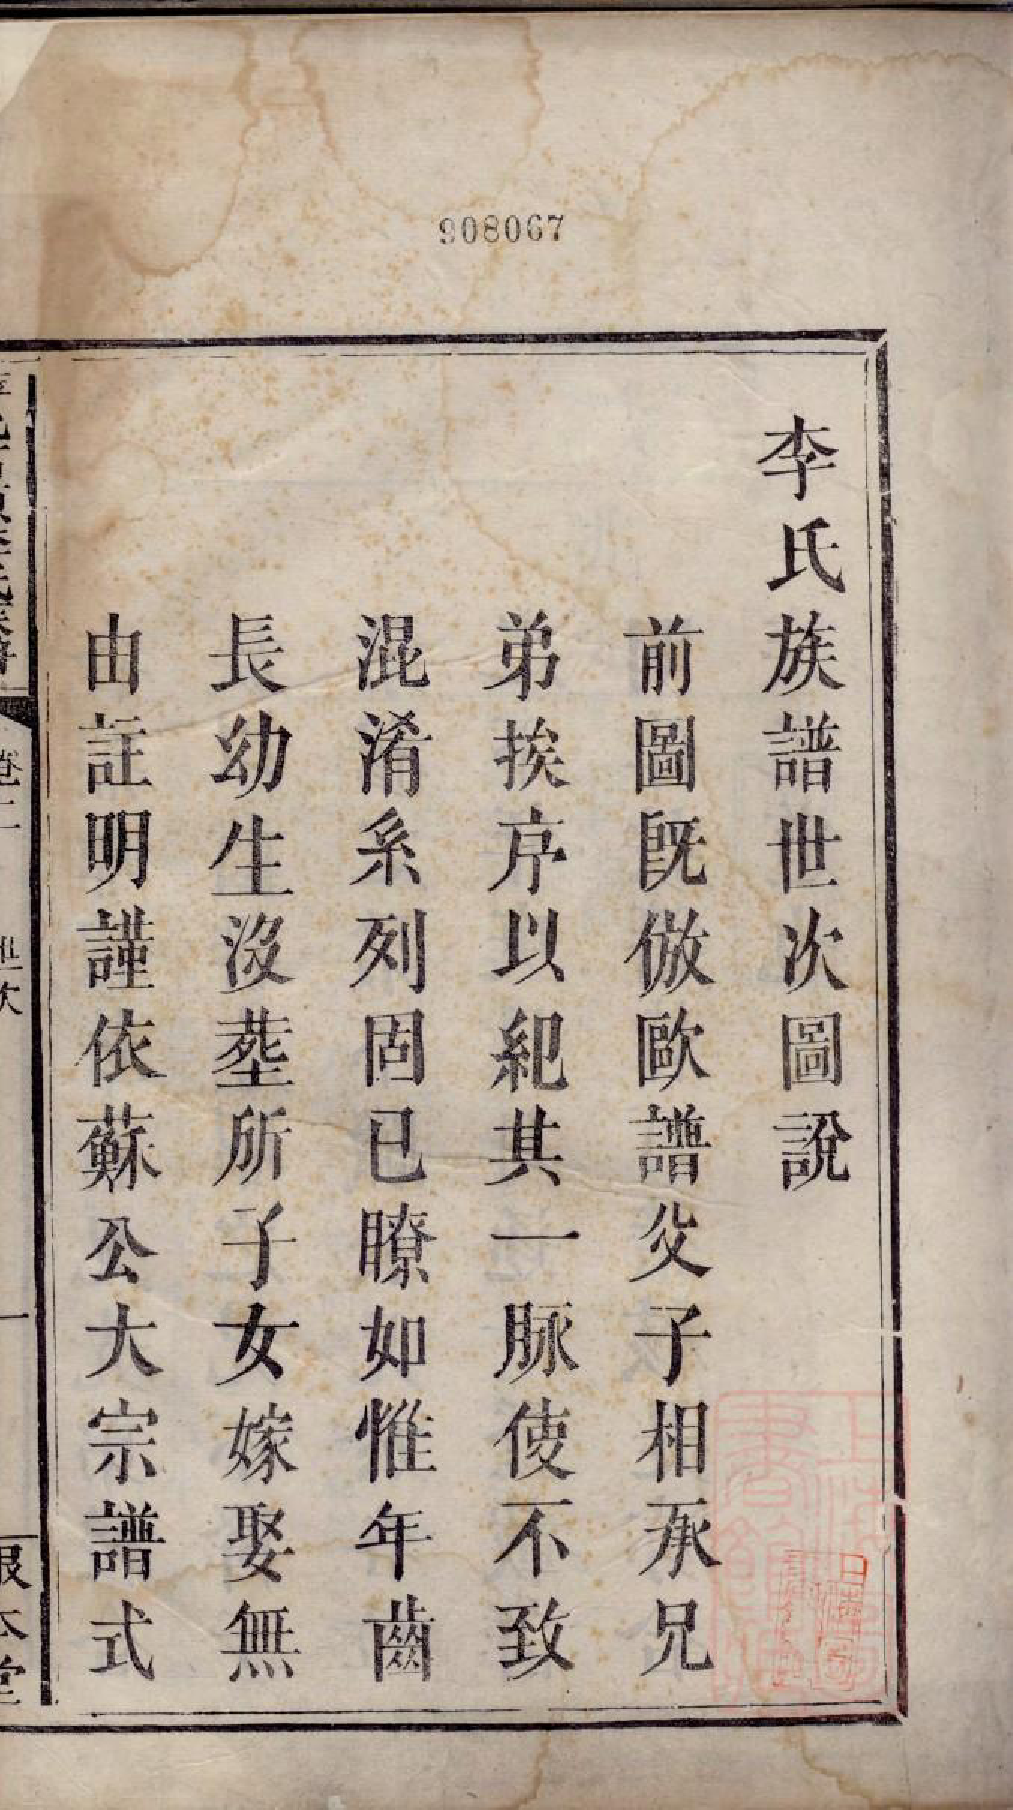 908067
李氏族譜世次圖說
前圖既倣歐譜父子相承兄
弟挨序以紀其一脈使不致
混淆系列固已瞭如惟年齒
長幼生沒塟所子女嫁娶無
由註明謹依蘇公大宗譜式
李氏族譜
卷二
世次
一
根本堂